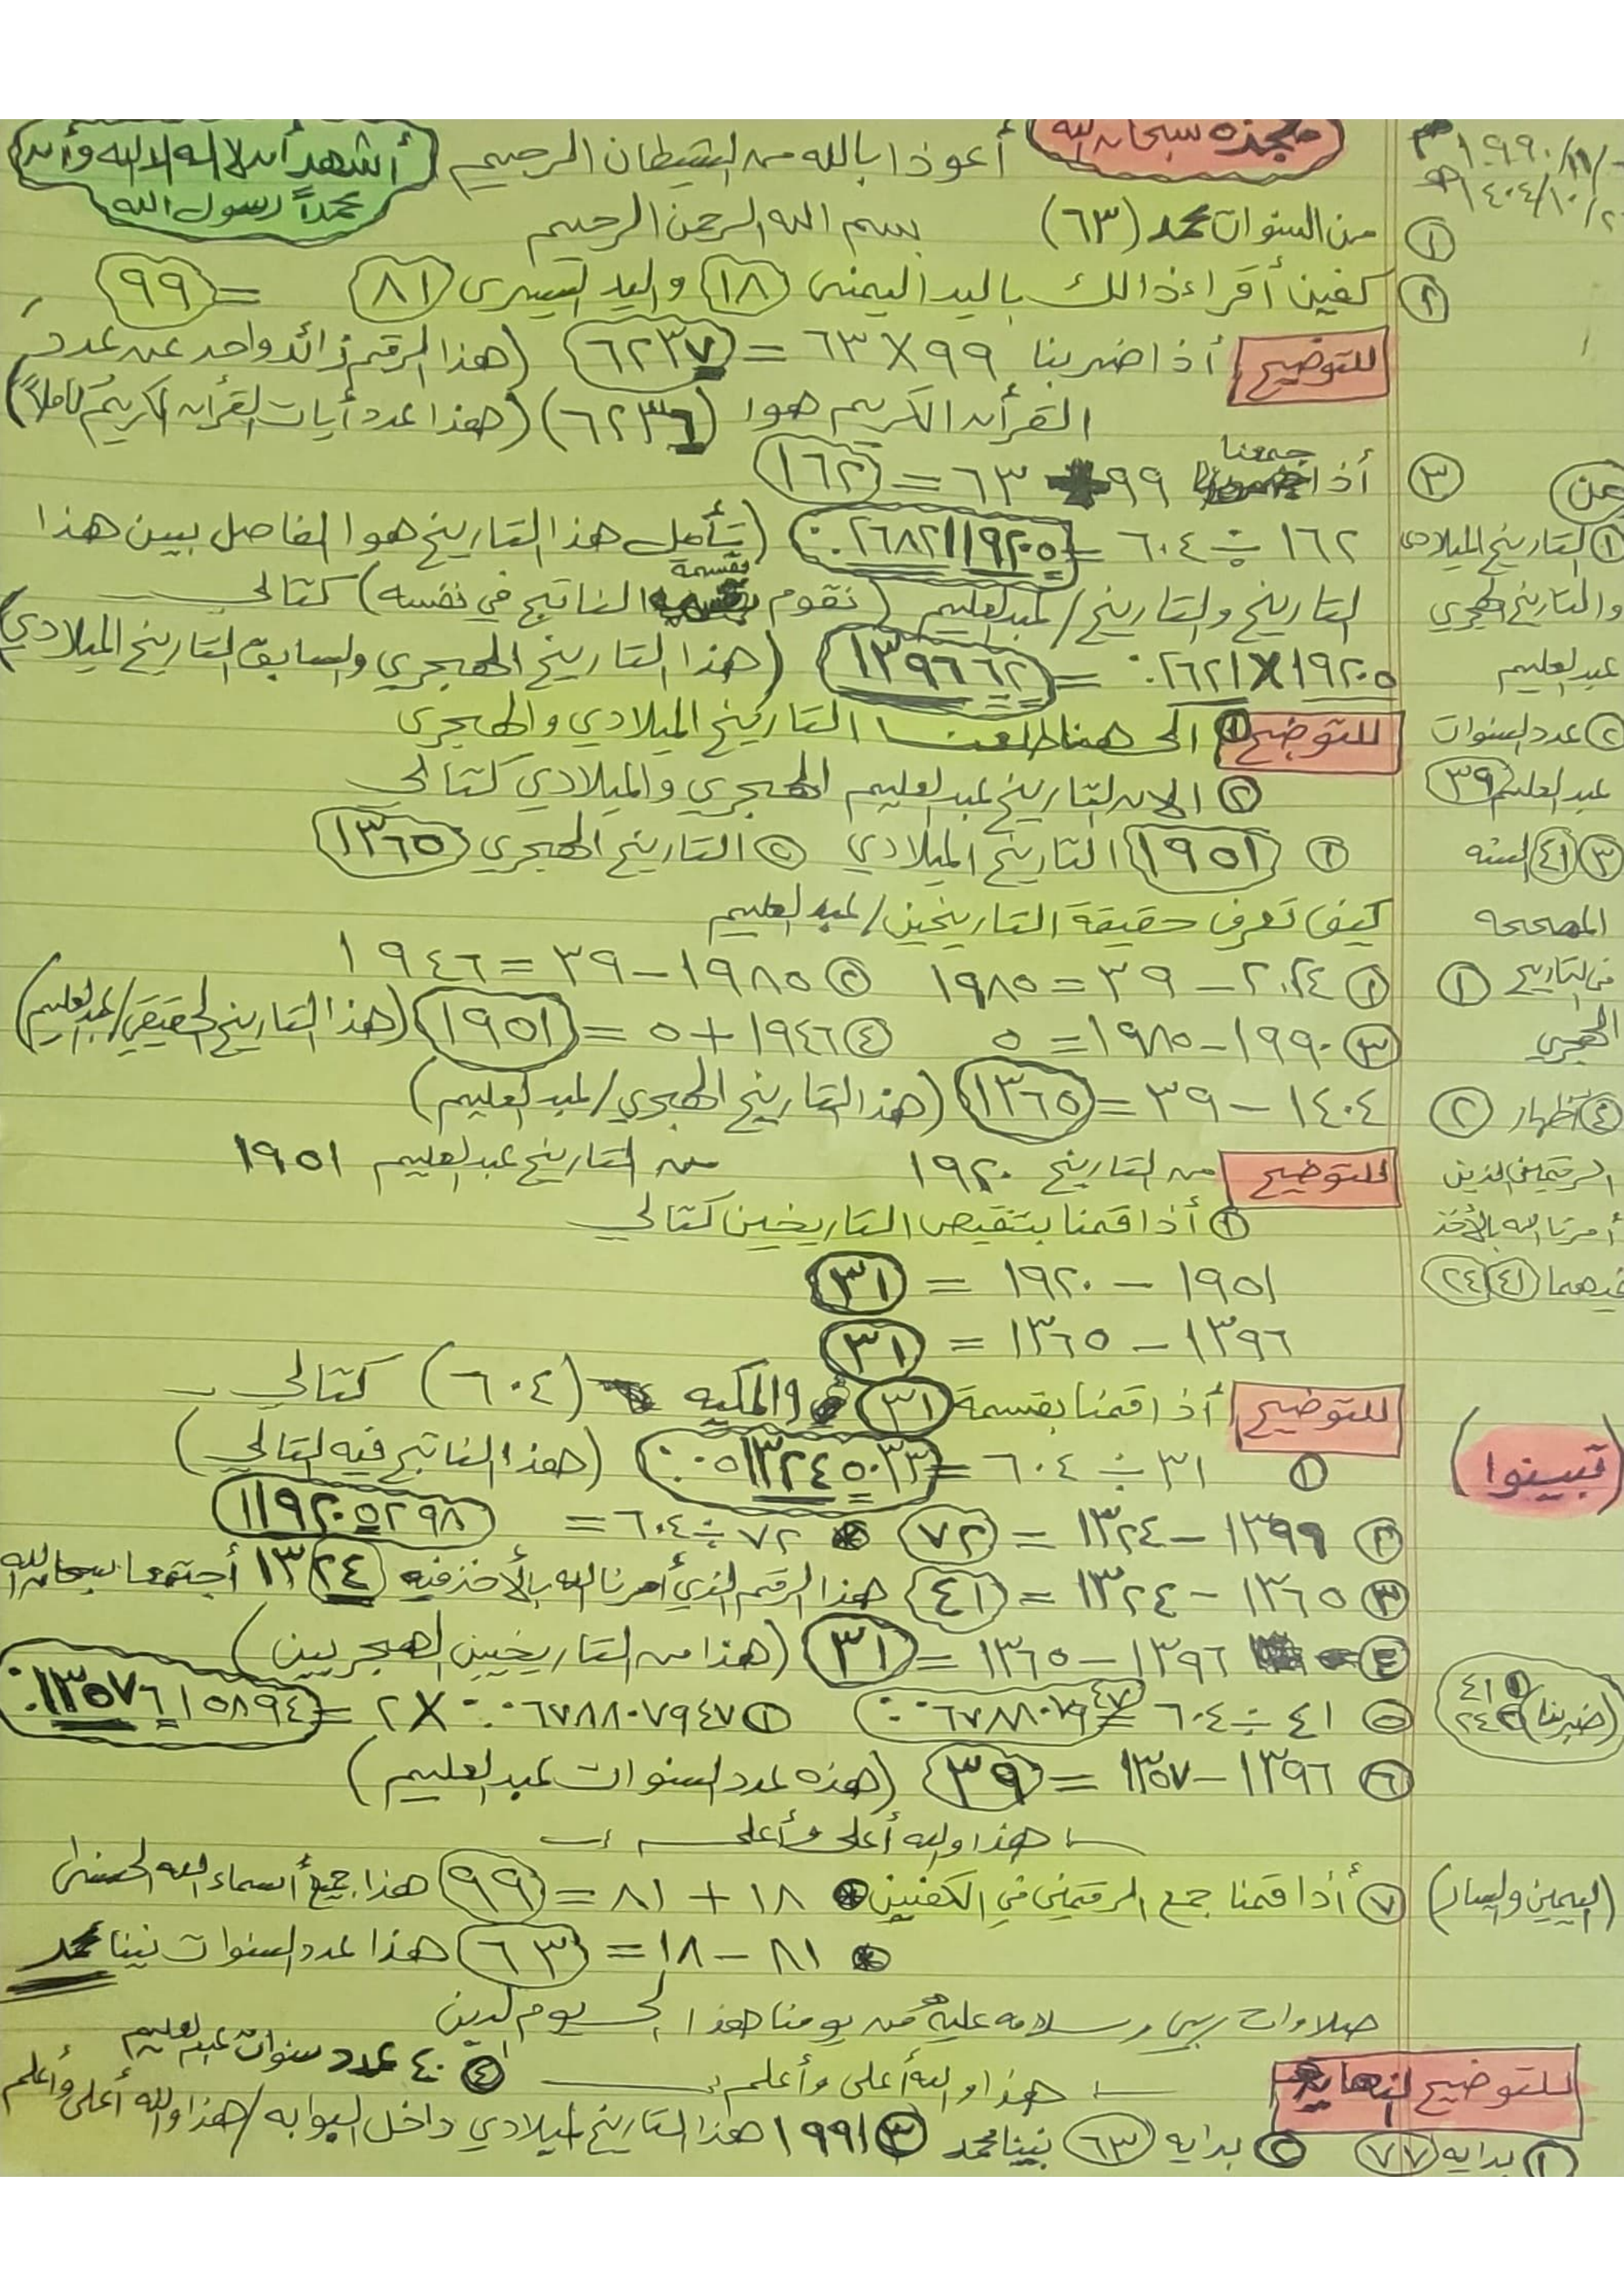 معجزه سبحان الله
أعوذ بالله من الشيطان الرجيم
أشهد أن لا اله الا الله وأن
محمداً رسول الله
١٩٩٠/١١/
١٤٠٤/١٠/٢
① من السنوات محمد (٦٣) بسم الله الرحمن الرحيم
② كفين أقراء ذالك باليد اليمنى ١٨ واليد اليسرى ٨١ = ٩٩
للتوضيح أذا ضربنا ٩٩ X ٦٣ = ٦٢٣٧ (هذا الرقم زائد واحد عن عدد
القرأن الكريم هوا (٦٢٣٦) (هذا عدد أيات القرأن الكريم كاملاً)
③ أذا جمعنا ٩٩ + ٦٣ = ١٦٢
١٦٢ ÷ ٦٠٤ = ٠.٢٦٨٢١١٩٢٠٥ (يتأمل هذا التاريخ هو الفاصل بين هذا
التاريخ والتاريخ/عبدالعليم (نقوم بقسمة الناتج في نفسه) كتالي
١٩٢٠٥ X ٠.٢٦٢١ = ١٣٩٦٦٢ (هذا التاريخ الهجري والسابق التاريخ الميلادي)
للتوضيح ① الى هنا طلعنا التاريخ الميلادي والهجري
② الان التاريخ عبدالعليم الهجري والميلادي كتالي
① ١٩٥١ التاريخ الميلادي ② التاريخ الهجري ١٣٦٥
كيف تعرف حقيقة التاريخين/عبدالعليم
① ٢٠٢٤ – ٣٩ = ١٩٨٥ ② ١٩٨٥ – ٣٩ = ١٩٤٦
③ ١٩٩٠ – ١٩٨٥ = ٥ ④ ١٩٤٦ + ٥ = ١٩٥١ (هذا التاريخ الحقيقي/عبدالعليم)
١٤٠٤ – ٣٩ = ١٣٦٥ (هذا التاريخ الهجري/عبدالعليم)
للتوضيح من التاريخ ١٩٢٠ من التاريخ عبدالعليم ١٩٥١
① أذا قمنا بتنقيص التاريخين كتالي
١٩٥١ – ١٩٢٠ = ٣١
١٣٩٦ – ١٣٦٥ = ٣١
للتوضيح أذا قمنا بقسمة ٣١ والمكيه (٦٠٤) كتالي
① ٣١ ÷ ٦٠٤ = ٠.٠٥١٣٢٤٥٠٣٣ (هذا الناتج فيه التالي)
② ١٣٩٩ – ١٣٢٤ = ٧٢ ٧٢ ÷ ٦٠٤ = ١١٩٢٠٥٢٩٨
③ ١٣٦٥ – ١٣٢٤ = ٤١ هذا الرقم الذي أمرنا الله بالأخذ فيه ١٣٢٤ أجتمعا سبحان الله
④ ١٣٩٦ – ١٣٦٥ = ٣١ (هذا من التاريخين الهجريين)
⑤ ٤١ ÷ ٦٠٤ = ٠.٠٦٧٨٨٠٧٩٤٧ ① ٠.٠٦٧٨٨٠٧٩٤٧ X ٢ = ٠.١٣٥٧٦١٥٨٩٤
⑥ ١٣٩٦ – ١٣٥٧ = ٣٩ (هذه عدد السنوات عبدالعليم)
هذا والله أعلى وأعلم
⑦ أذا قمنا جمع الرقمين في الكفين ١٨ + ٨١ = ٩٩ هذا جميع أسماء الله الحسنى
٨١ – ١٨ = ٦٣ هذا عدد السنوات نبينا محمد
صلاوات ربي وسلامه عليه من يومنا هذا الى يوم الدين
هذا والله أعلى وأعلم ④ ٤٠ عدد سنوات عبدالعليم
للتوضيح النهايه
① بدايه ٧٧ ② بدايه ٦٣ نبينا محمد ③ ١٩٩١ هذا التاريخ الميلادي داخل البوابه/هذا والله أعلى وأعلم
عن
① التاريخ الميلادى
والتاريخ الهجري
عبدالعليم
② عدد السنوات
عبدالعليم ٣٩
③ ٤١ السنه
المصححه
① في التاريخ
الهجري
④ أظهار ②
الرقمين الذين
أمرنا الله بالأخذ
فيهما ٤١ ٢٤
(تبينوا)
(ضربنا) ① ٤١ ② ٢٤
(اليمين واليسار)